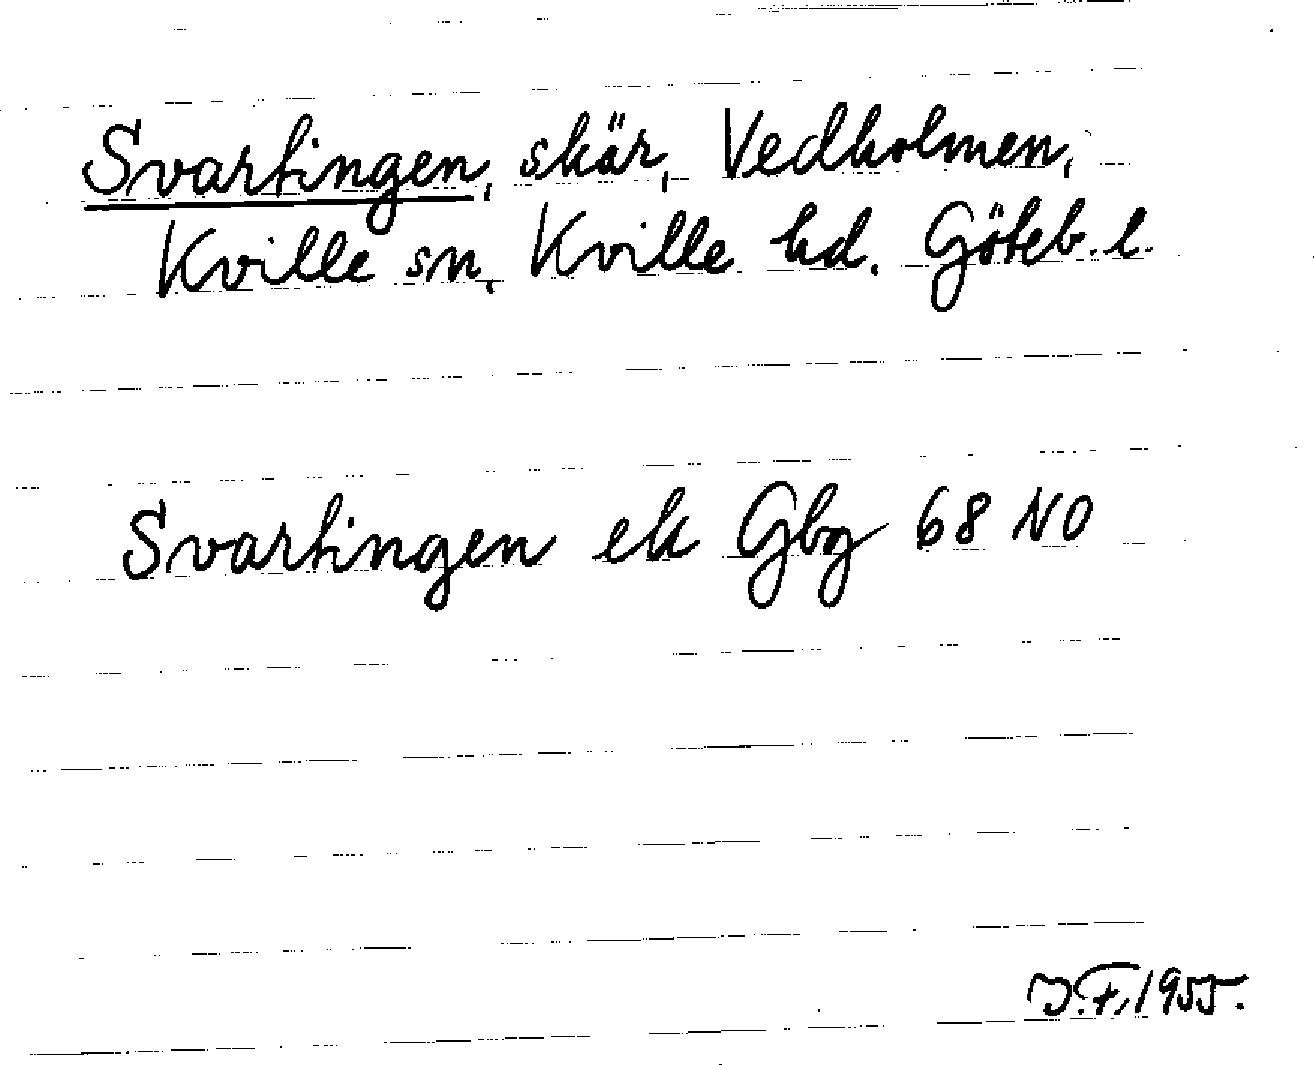 Svartingen, skär, Vedholmen,
Kville sn, Kville hd. Göteb. l.
Svartingen ek Gbg 68 NO
J.F, 1955.